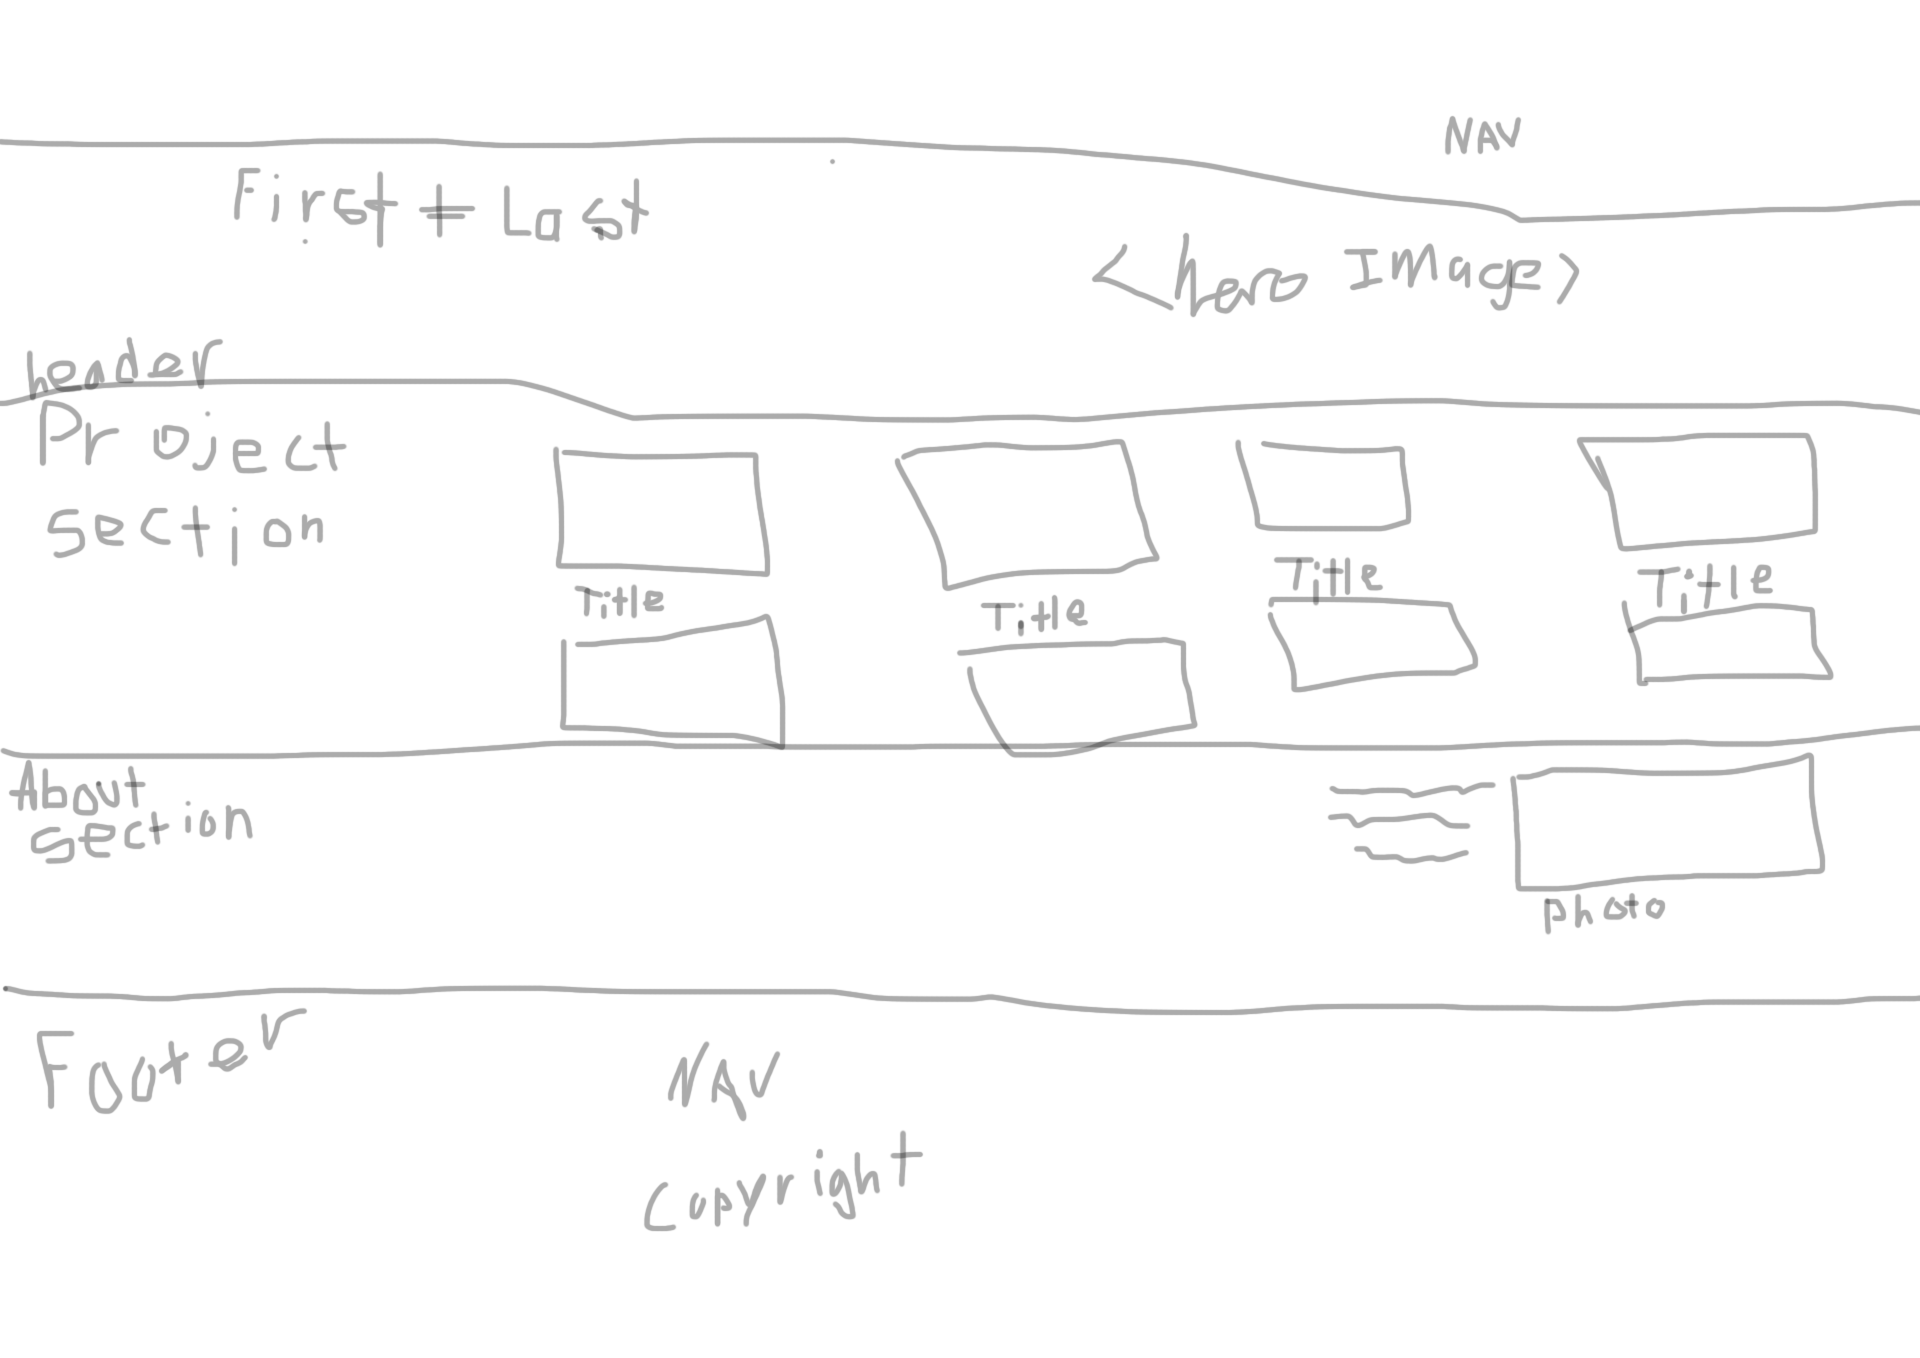 NAV
First + Last
<hero Image>
header
Project
section
Title
Title
Title
Title
About
section
photo
Footer
NAV
Copyright